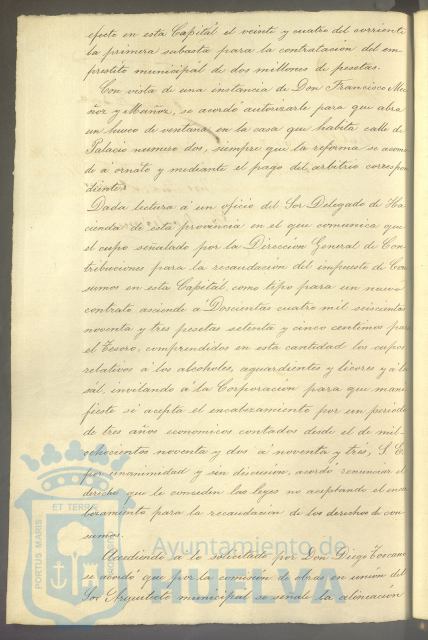 efecto en esta Capital el veinte y cuatro del corriente
la primera subasta para la contratacion del em
prestito municipal de dos millones de pesetas.
Con vista de una instancia de Don Francisco Mu
ñoz y Muñoz, se acordó autorizarle para que abra
un hueco de ventana en la casa que habita calle de
Palacio numero dos, siempre que la reforma se acomo
de á ornato y mediante el pago del arbitrio correspon
diente.
Dada lectura á un oficio del Sor Delegado de Ha
cienda de esta provincia en el que comunica que
el cupo señalado por la Direccion General de Con
tribuciones para la recaudacion del impuesto de Con
sumos en esta Capital, como tipo para un nuevo
contrato asciende á Doscientas cuatro mil seiscientas
noventa y tres pesetas setenta y cinco centimos para
el Tesoro, comprendidos en esta cantidad los cupos
relativos á los alcoholes, aguardientes y licores y á la
sal, invitando á la Corporacion para que mani
fieste si acepta el encabezamiento por un periodo
de tres años economicos contados desde el de mil
ochocientos noventa y dos á noventa y tres, S. E.
por unanimidad y sin discusion, acordó renunciar el
derecho que le conceden las leyes no aceptando el enca
bezamiento para la recaudacion de los derechos de con
sumos.
Accediendo á lo solicitado por Don Diego Toscano
se acordó que por la comision de obras en union del
Sor Arquitecto municipal se señale la alineacion
PORTUS MARIS
ET TERRAE
CUSTODIA
Ayuntamiento de
HUELVA